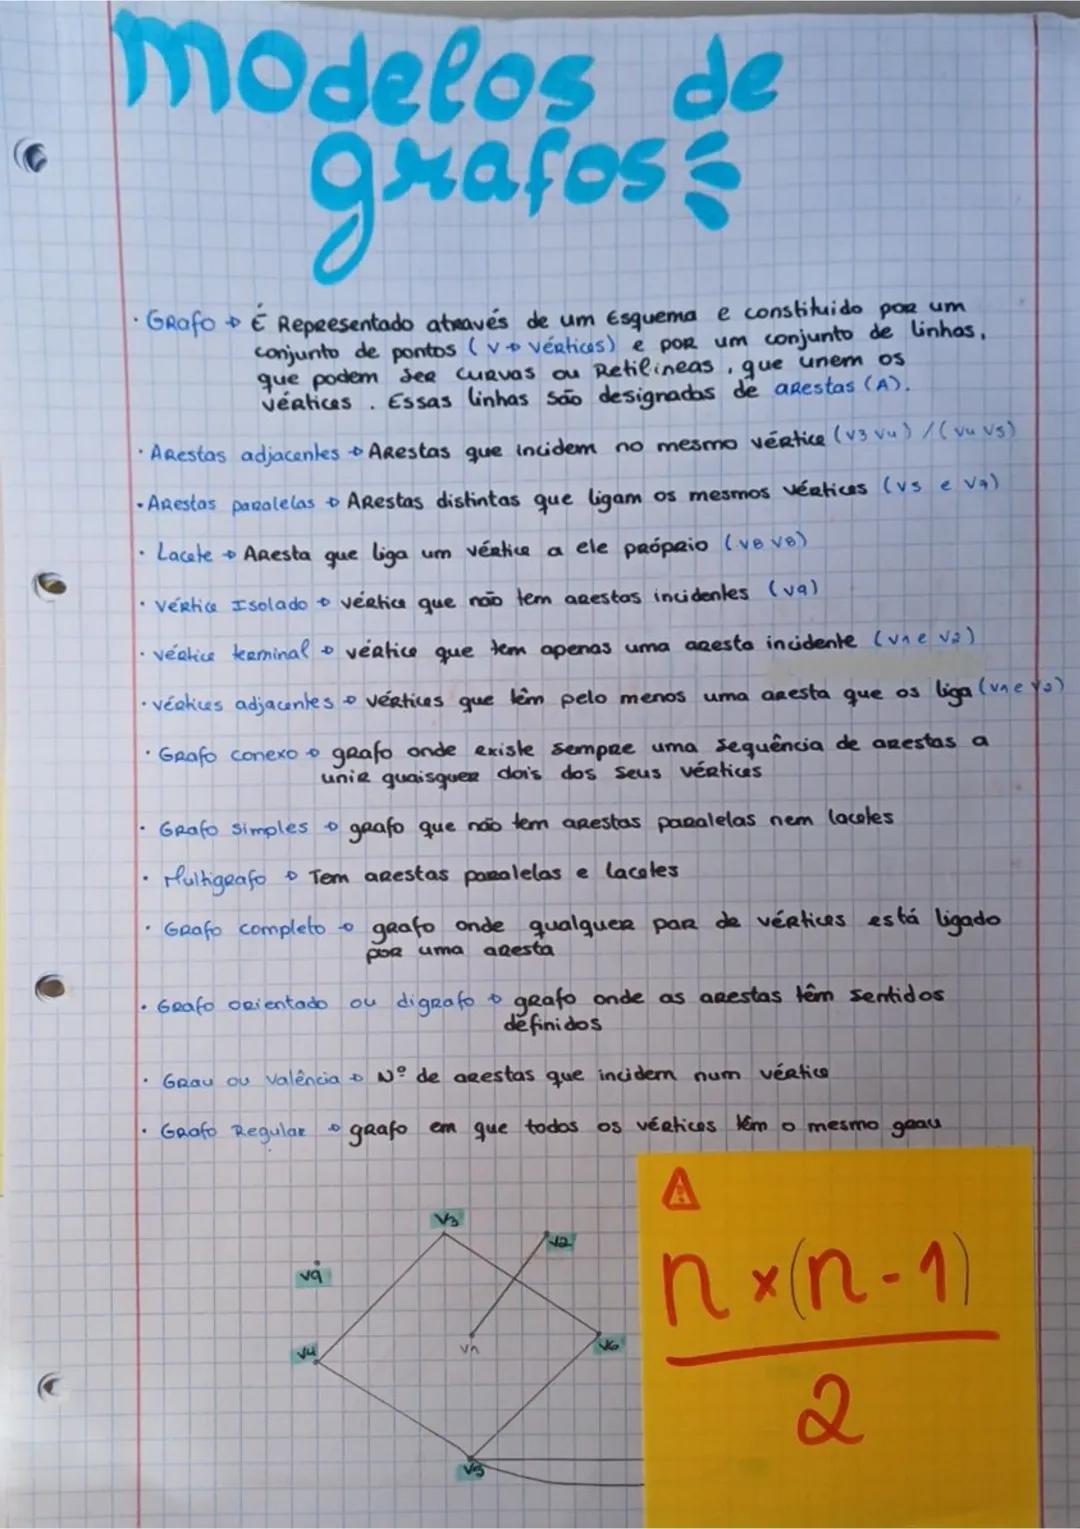 modelos de
grafos
· Grafo → É Representado através de um Esquema e constituido por um
conjunto de pontos (V → vértices) e por um conjunto de linhas,
que podem ser curvas ou Retilíneas, que unem os
vértices. Essas linhas são designadas de arestas (A).
· Arestas adjacentes → Arestas que incidem no mesmo vértice (v3 v4) / (v4 v5)
· Arestas paralelas → Arestas distintas que ligam os mesmos vértices (v5 e v7)
· Lacete → Aresta que liga um vértice a ele próprio (v8 v8)
· Vértice Isolado → vértice que não tem arestas incidentes (v9)
· vértice terminal → vértice que tem apenas uma aresta incidente (v1 e v2)
· vértices adjacentes → vértices que têm pelo menos uma aresta que os liga (v1 e v2)
· Grafo conexo → grafo onde existe sempre uma sequência de arestas a
unir quaisquer dois dos seus vértices
· Grafo simples → grafo que não tem arestas paralelas nem lacetes
· Multigrafo → Tem arestas paralelas e lacetes
· Grafo completo → grafo onde qualquer par de vértices está ligado
por uma aresta
· Grafo orientado ou digrafo → grafo onde as arestas têm sentidos
definidos
· Grau ou Valência → Nº de arestas que incidem num vértice
· Grafo Regular → grafo em que todos os vértices têm o mesmo grau
v3
v2
v9
v4
v1
v6
v5
n x (n - 1)
2